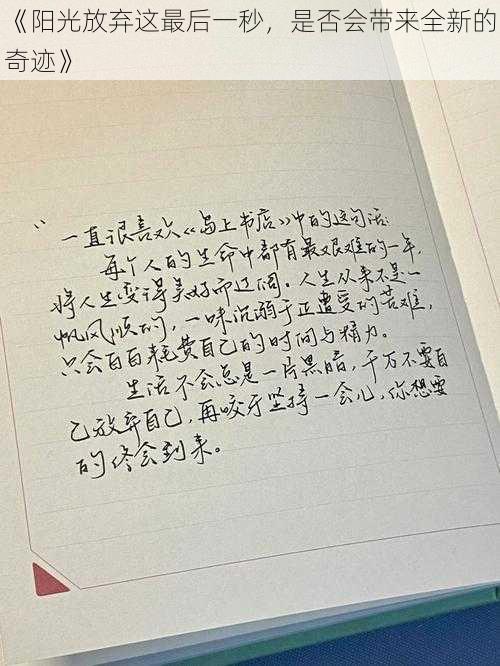 《阳光放弃这最后一秒，是否会带来全新的
奇迹》
“一直很喜欢《岛上书店》中的这句话:
每个人的生命中都有最艰难的一年,
将人生变得美好而辽阔。人生从来不是一
帆风顺的,一味沉溺于正遭受的苦难,
只会白白耗费自己的时间与精力。
生活不会总是一片黑暗,千万不要自
己放弃自己,再咬牙坚持一会儿,你想要
的终会到来。